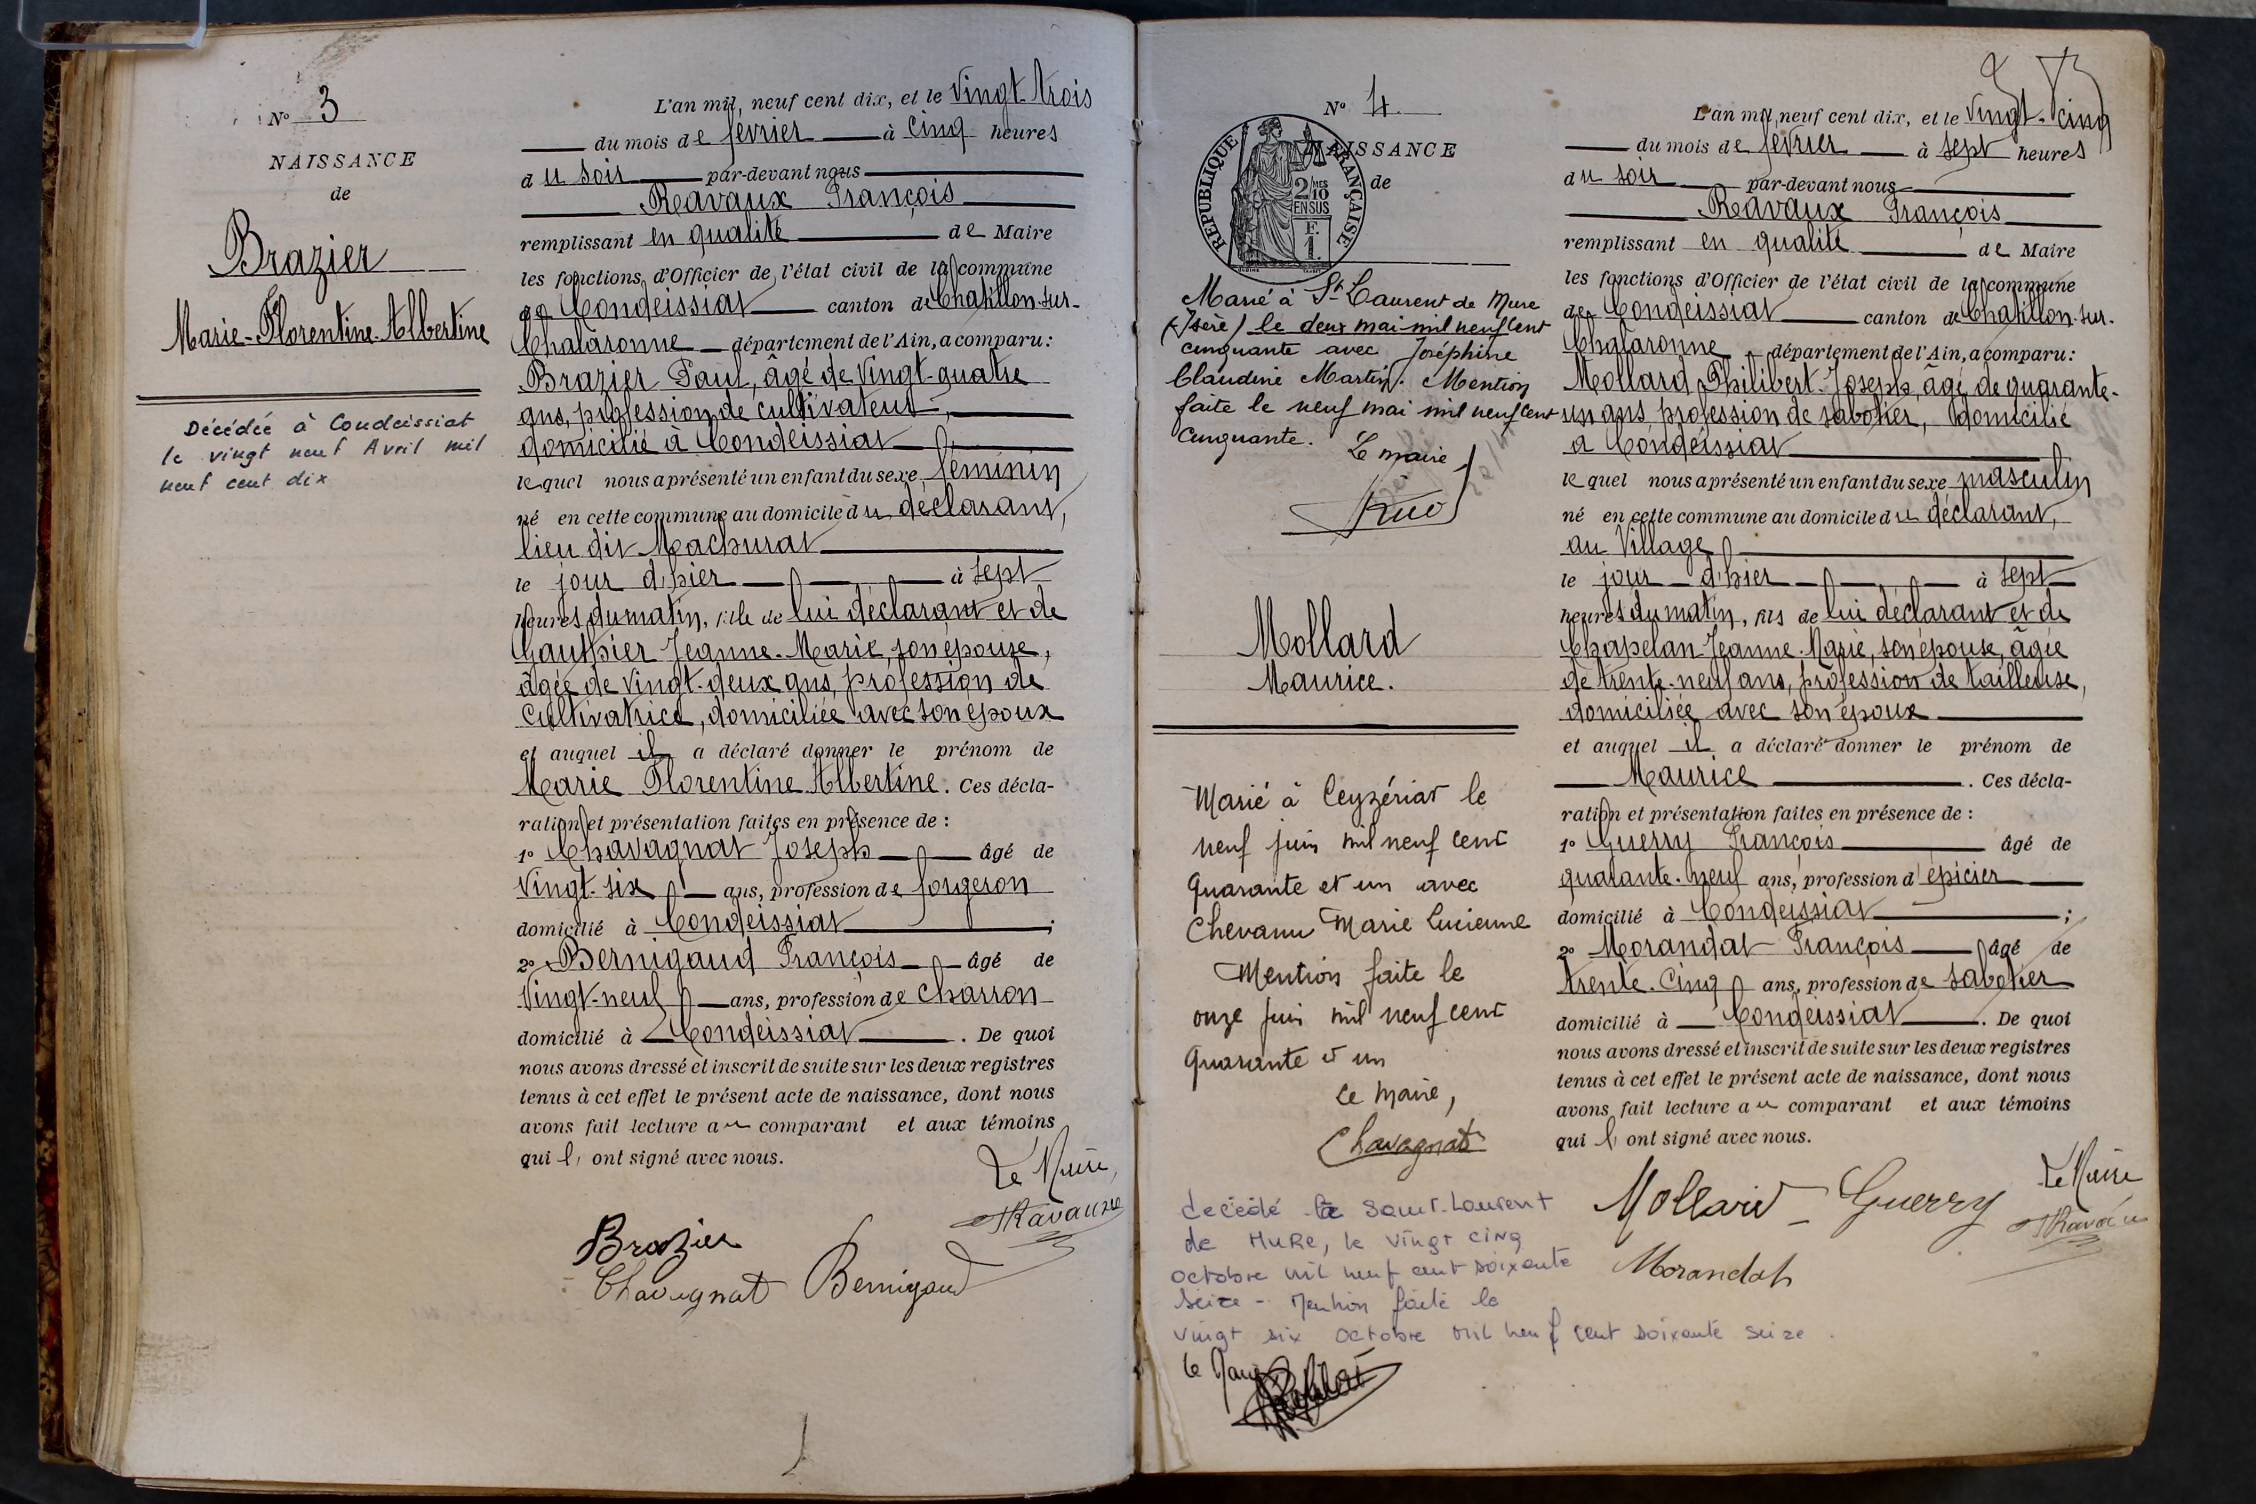 N° 3
NAISSANCE
de
Brazier
Marie-Florentine-Albertine
Décédée à Condeissiat
le vingt neuf Avril mil
neuf cent dix
L'an mil neuf cent dix, et le vingt-trois
du mois de février à cinq heures
du soir par-devant nous
Ravaux François
remplissant en qualité de Maire
les fonctions d'Officier de l'état civil de la commune
de Condeissiat canton de Chatillon-sur-
Chalaronne département de l'Ain, a comparu :
Brazier Paul, âgé de vingt-quatre
ans, profession de cultivateur,
domicilié à Condeissiat
lequel nous a présenté un enfant du sexe féminin
né en cette commune au domicile du déclarant,
lieu dit Machurat
le jour d'hier à sept
heures du matin, fille de lui déclarant et de
Gauthier Jeanne-Marie, son épouse,
âgée de vingt-deux ans, profession de
cultivatrice, domiciliée avec son époux
et auquel il a déclaré donner le prénom de
Marie Florentine Albertine. Ces décla-
ration et présentation faites en présence de :
1° Chavagnat Joseph âgé de
vingt-six ans, profession de forgeron
domicilié à Condeissiat ;
2° Bernigaud François âgé de
vingt-neuf ans, profession de charron
domicilié à Condeissiat. De quoi
nous avons dressé et inscrit de suite sur les deux registres
tenus à cet effet le présent acte de naissance, dont nous
avons fait lecture au comparant et aux témoins
qui l'ont signé avec nous.
Le Maire,
Ravaux
Brazier
Chavagnat Bernigaud
N° 4
NAISSANCE
de
RÉPUBLIQUE FRANÇAISE
2/10 MES
EN SUS
F.
1.
Marié à St Laurent de Mure
(Isère) le deux mai mil neuf cent
cinquante avec Joséphine
Claudine Martin. Mention
faite le neuf mai mil neuf cent
cinquante.
Le maire
Mollard
Maurice.
Marié à Ceyzériat le
neuf juin mil neuf cent
quarante et un avec
Marie Lucienne
Mention faite le
onze juin mil neuf cent
quarante et un
Le Maire,
Chavagnat
decédé à Saint-Laurent
de MURE, le vingt cinq
octobre mil neuf cent soixante
seize - Mention faite le
vingt six octobre mil neuf cent soixante seize.
le Maire
L'an mil neuf cent dix, et le vingt-cinq
du mois de février à sept heures
du soir par-devant nous
Ravaux François
remplissant en qualité de Maire
les fonctions d'Officier de l'état civil de la commune
de Condeissiat canton de Chatillon-sur-
Chalaronne département de l'Ain, a comparu :
Mollard Philibert-Joseph, âgé de quarante-
un ans, profession de sabotier, domicilié
à Condeissiat
lequel nous a présenté un enfant du sexe masculin
né en cette commune au domicile du déclarant,
au Village
le jour d'hier à sept
heures du matin, fils de lui déclarant et de
Chapelan Jeanne-Marie, son épouse, âgée
de trente-neuf ans, profession de tailleuse,
domiciliée avec son époux
et auquel il a déclaré donner le prénom de
Maurice. Ces décla-
ration et présentation faites en présence de :
1° Guerry François âgé de
quarante-neuf ans, profession d'épicier
domicilié à Condeissiat ;
2° Morandat François âgé de
trente-cinq ans, profession de sabotier
domicilié à Condeissiat. De quoi
nous avons dressé et inscrit de suite sur les deux registres
tenus à cet effet le présent acte de naissance, dont nous
avons fait lecture au comparant et aux témoins
qui l'ont signé avec nous.
Le Maire
Ravaux
Mollard Guerry
Morandat